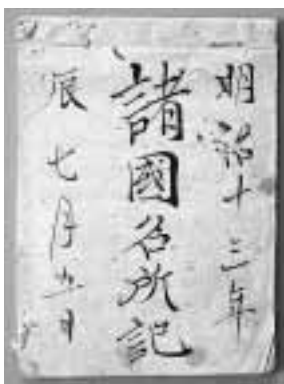 明治十三年
諸國名所記
辰七月五日